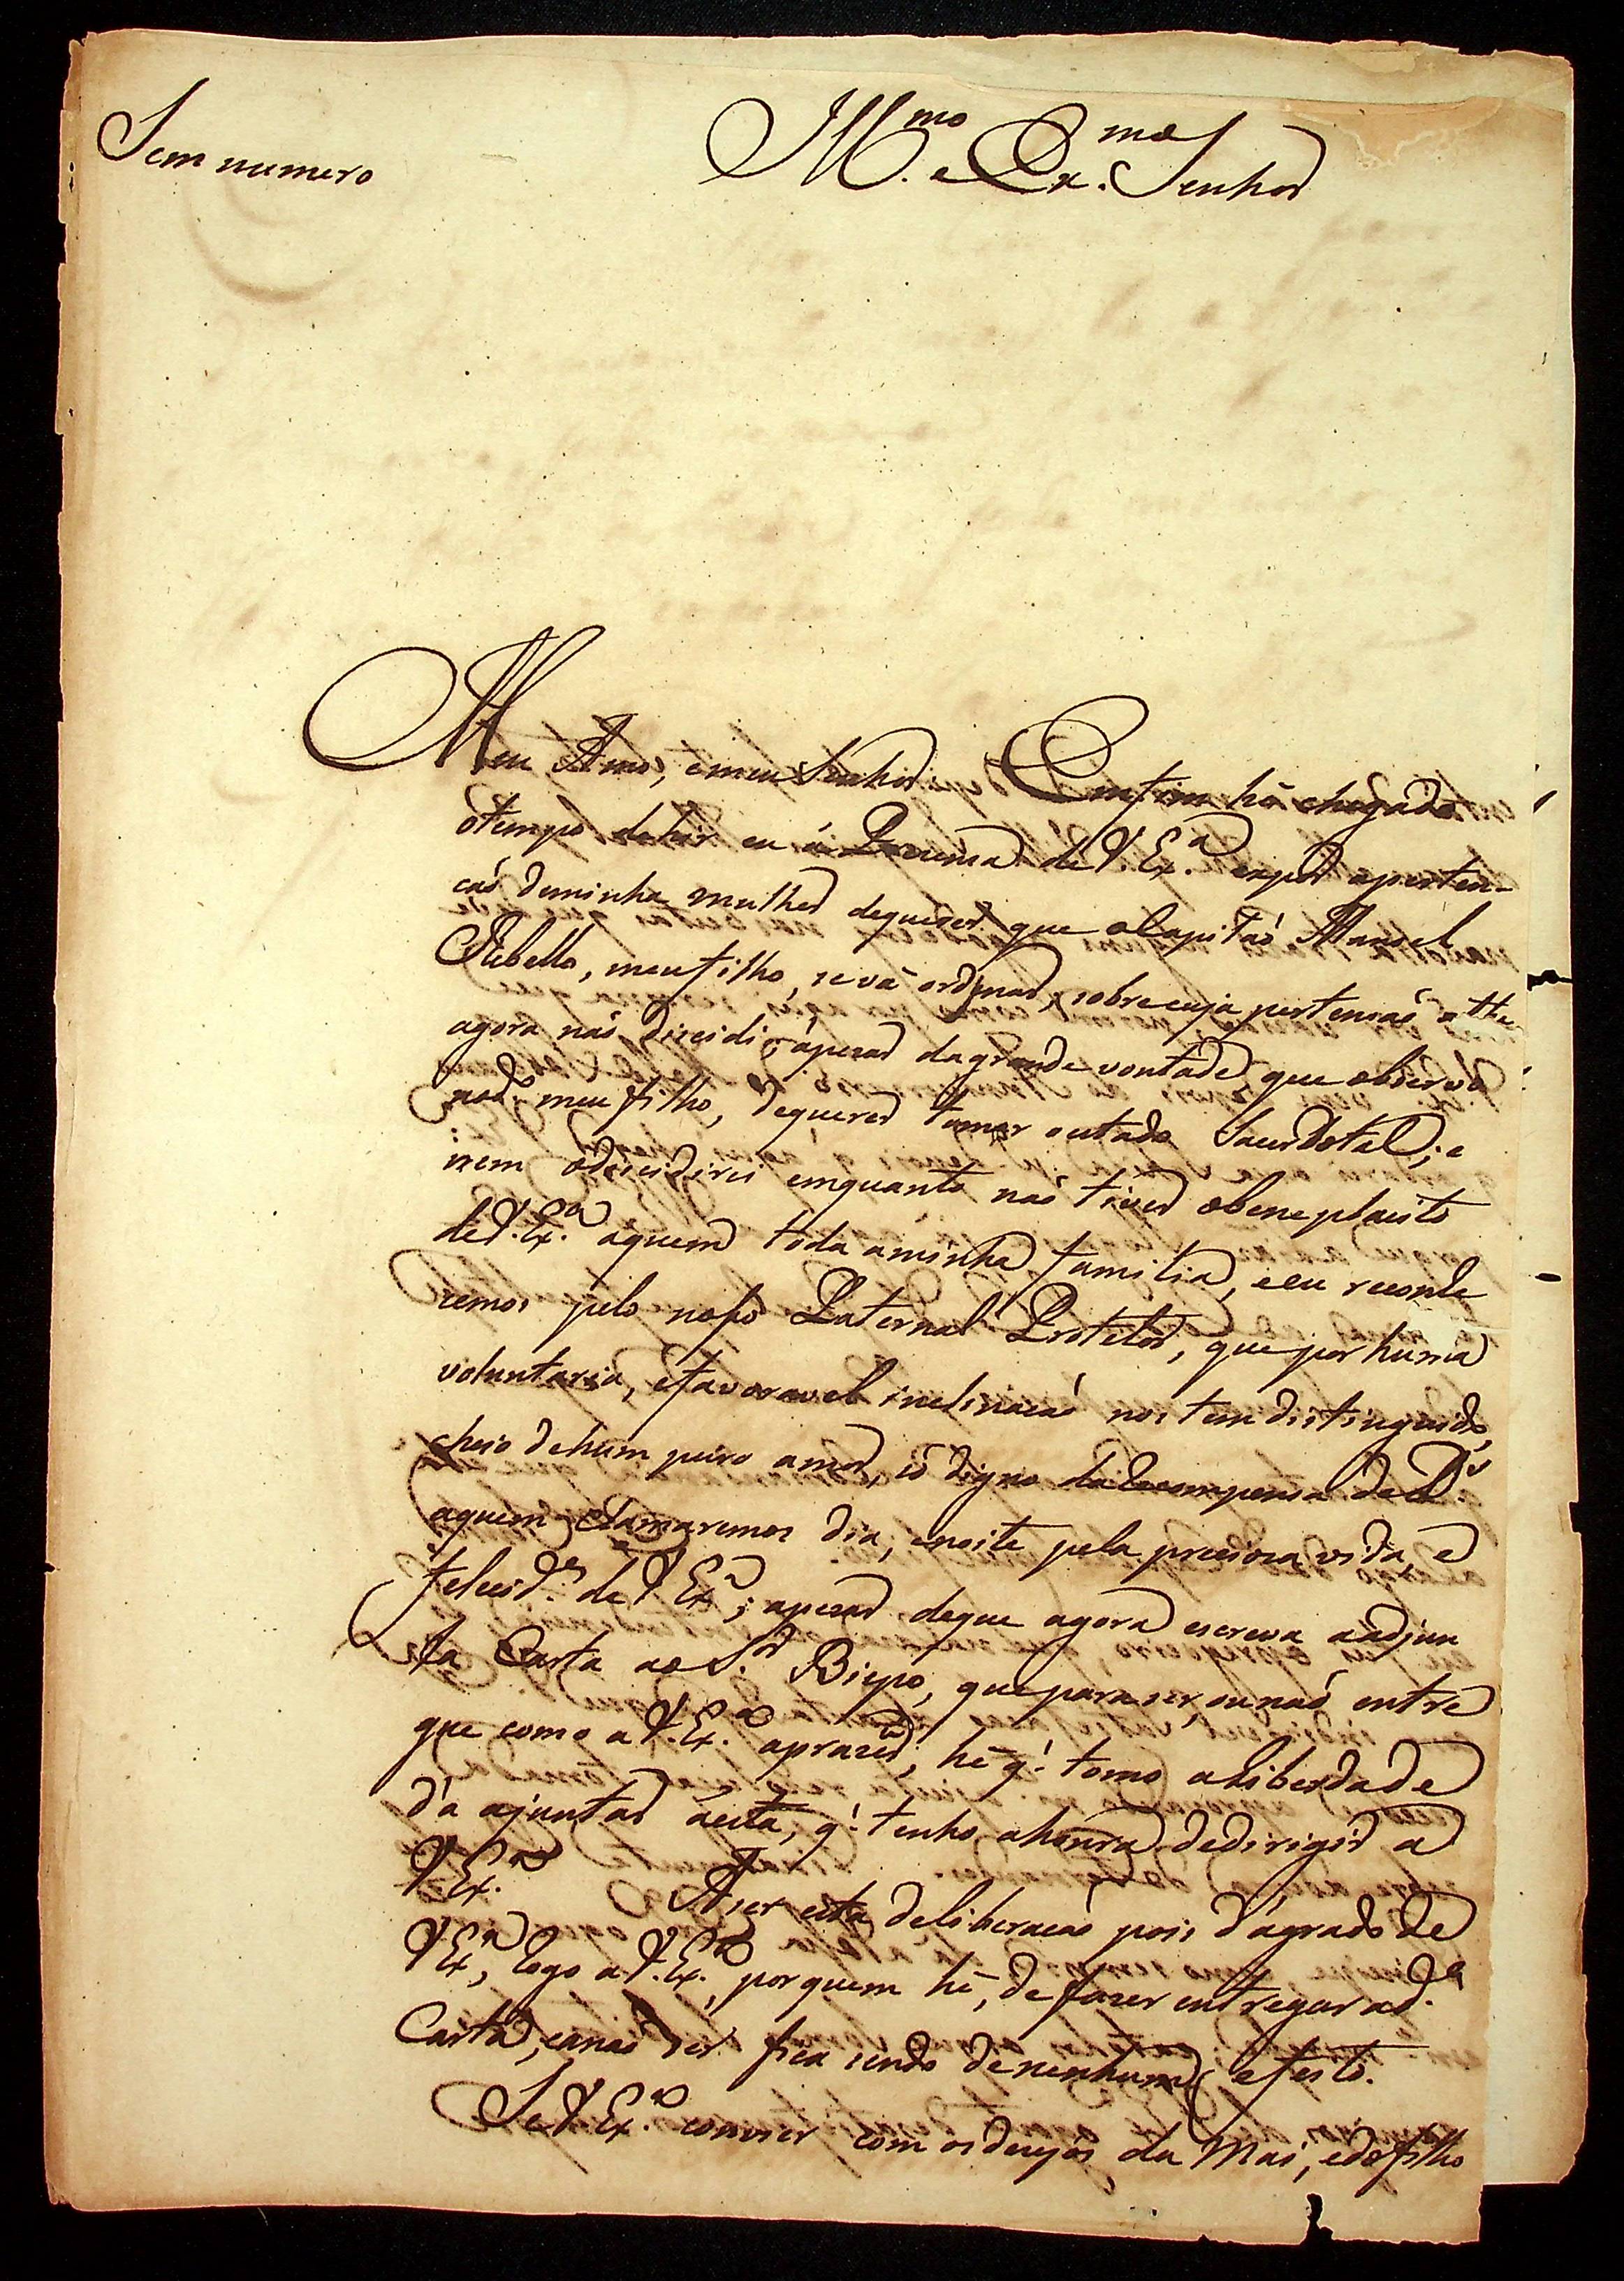 Sem numero
Ill.mo e Ex.mo Senhor
Meu Amo, e meu Senhor. Emfim hé chegado
otempo de hir eu á Prezença de V. Ex.a expor aperten-
çaõ deminha mulher dequerer que oCapitaõ Manoel
Rebello, meu filho, se vá ordenar, sobre cuja pertensaõ athe
agora naõ dicidi, apezar dagrande vontade que observo
nod.o meu filho, dequerer tomar oestado Sacerdotal; e
nem odecidirei emquanto naõ tiver obeneplacito
deV. Ex.a aquem toda aminha familia, eeu reconhe
cemos pelo nosso Paternal Protetor, que por huma
voluntaria, efavoravel inclinacaõ nos tem distinguido,
cheio dehum puro amor, só digno daRecompensa de D.s
aquem clamaremos dia, enoite pela preciosa vida, e
felecid.es de V. Ex.a; apezar deque agora escreva aadjun
ta Carta ao S.or Bispo, que para ser, ounaõ entre
gue como a V. Ex.a aprazer, hé q.' tomo aliberdade
d'a ajuntar áesta, q.' tenho ahonra dedirigir a
V. Ex.a A ser esta deliberacaõ pois d'agrado de
V. Ex.a, Rogo a V. Ex.a, por quem hé, de fazer entregar ad.a
Carta, eanaõ ser fica sendo denenhum efeito.
Se V. Ex.a convier com osdezejos da Mai, edofilho